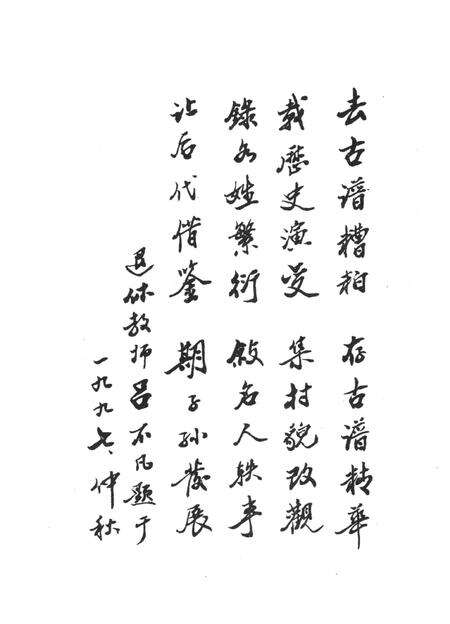 去古谱糟粕 存古谱精华
载歷史演变 集村貌改觀
錄各姓繁衍 敘名人轶事
让后代借鉴 期子孙发展
退休教师吕不凡题于
一九九七、仲秋